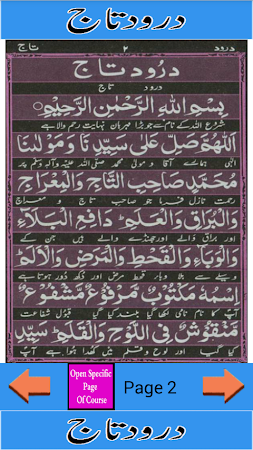 درود تاج
تاج ۲ درود
درود تاج
درود تاج
بِسْمِ اللهِ الرَّحْمٰنِ الرَّحِيْمِ
شروع اللہ کے نام سے جو بڑا مہربان نہایت رحم والا ہے
اَللّٰهُمَّ صَلِّ عَلٰى سَيِّدِنَا وَمَوْلٰنَا
الٰہی ہمارے آقا و مولیٰ محمد صلی اللہ علیہ وآلہ وسلم پر
مُحَمَّدٍ صَاحِبِ التَّاجِ وَالْمِعْرَاجِ
رحمت نازل فرما جو صاحب تاج و معراج
وَالْبُرَاقِ وَالْعَلَمِ دَافِعِ الْبَلَآءِ
اور براق والے اور جھنڈے والے ہیں جن کے
وَالْوَبَآءِ وَالْقَحْطِ وَالْمَرَضِ وَالْاَلَمِ
وسیلے سے بلا وبا قحط مرض اور دکھ دور ہوتا ہے
اِسْمُهٗ مَكْتُوْبٌ مَّرْفُوْعٌ مَّشْفُوْعٌ
آپ کا نام نامی لکھا گیا بلند کیا گیا قبول شفاعت
مَّنْقُوْشٌ فِى اللَّوْحِ وَالْقَلَمِ سَيِّدِ
کیا گیا اور لوح و قلم میں کھدا ہوا ہے آپ
Open Specific
Page
Of Course
Page 2
درود تاج